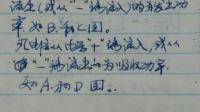 流出(或从“-”端流入)的为发出功
率 如B.和C图。
凡电流从电压“+”端流入,或从
“-”端流出的为吸收功率.
如A.和D图。